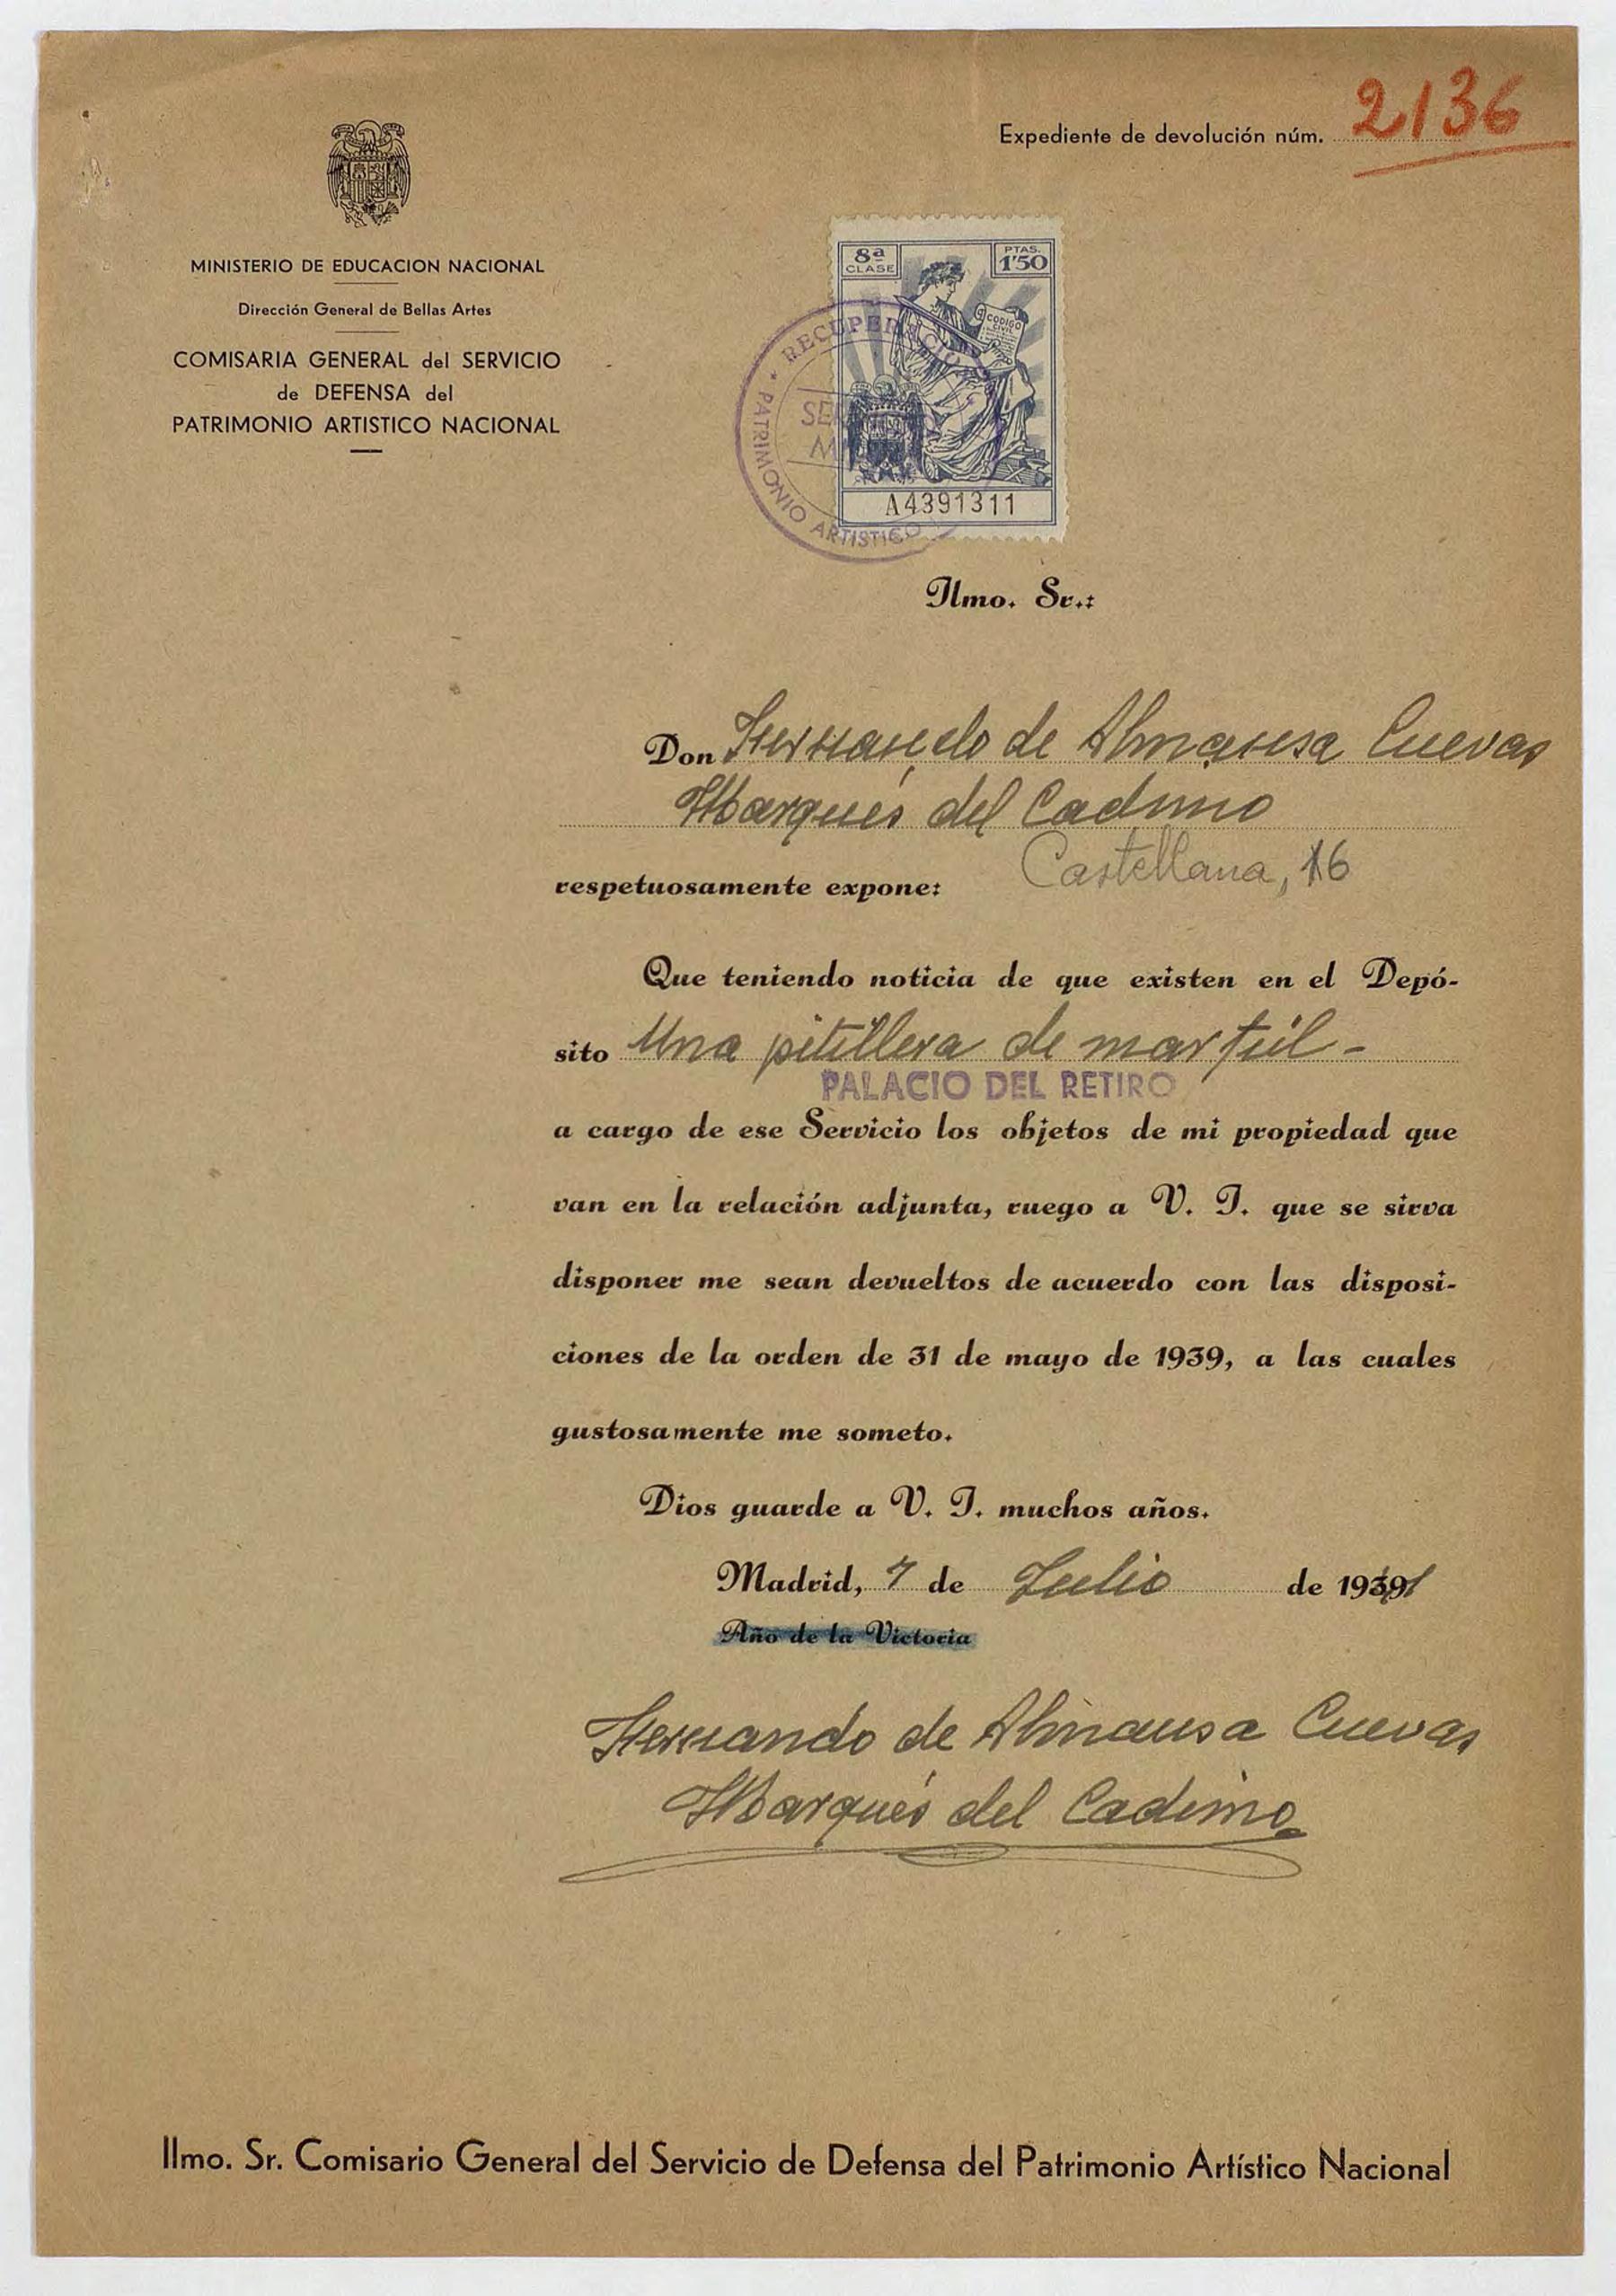 Expediente de devolución núm. 2136
MINISTERIO DE EDUCACION NACIONAL
Dirección General de Bellas Artes
COMISARIA GENERAL del SERVICIO
de DEFENSA del
PATRIMONIO ARTISTICO NACIONAL
8ª CLASE
PTAS. 1'50
CODIGO CIVIL
RECUPERACION
PATRIMONIO ARTISTICO
A4391311
Ilmo. Sr.:
Don Fernando de Almansa Cuevas
Marqués del Cadimo
respetuosamente expone: Castellana, 16
Que teniendo noticia de que existen en el Depó-
sito Una pitillera de marfil -
PALACIO DEL RETIRO
a cargo de ese Servicio los objetos de mi propiedad que
van en la relación adjunta, ruego a V. I. que se sirva
disponer me sean devueltos de acuerdo con las disposi-
ciones de la orden de 31 de mayo de 1939, a las cuales
gustosamente me someto.
Dios guarde a V. I. muchos años.
Madrid, 7 de Julio de 1941
Año de la Victoria
Fernando de Almansa Cuevas
Marqués del Cadimo
Ilmo. Sr. Comisario General del Servicio de Defensa del Patrimonio Artístico Nacional